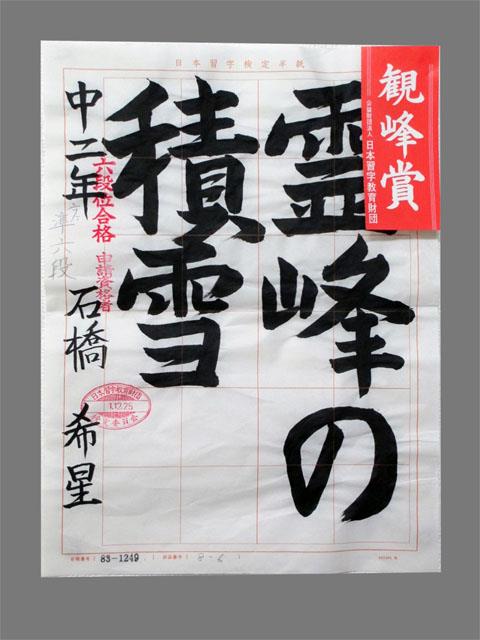 日本習字検定半紙
観峰賞
公益財団法人 日本習字教育財団
霊峰の
積雪
六段位合格 申請資格者
中二年
準六段
石橋 希星
日本習字教育財団
1.12.25
83-1249
8-6